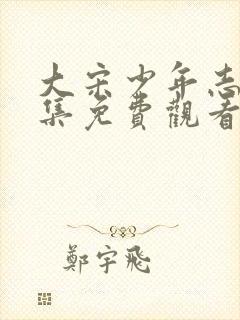 大宋少年志
集免費觀看
鄭宇飛